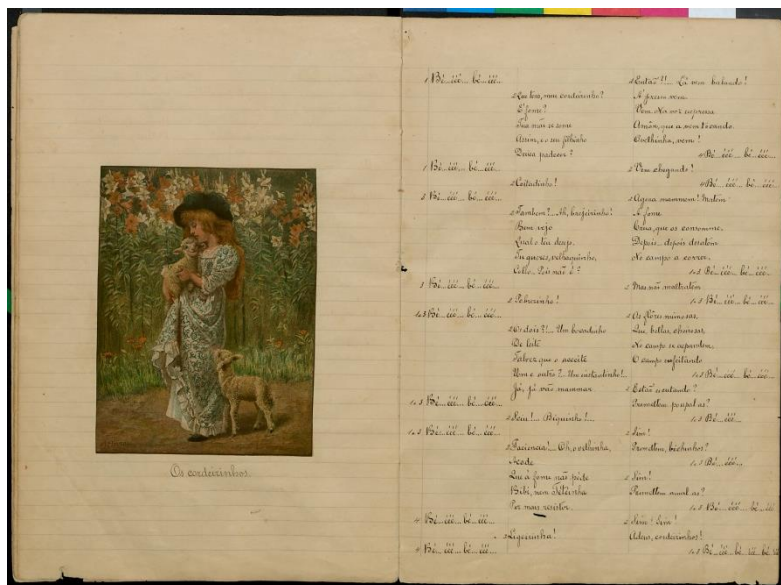 Os cordeirinhos
1 Bé... éé... bé... éé...
2 Que tens, meu cordeirinho?
É fome?
Tua mãe se some
Assim, e o seu filhinho
Deixa padecer?
1 Bé... éé... bé... éé...
2 Coitadinho!
3 Bé... éé... bé... éé...
2 Tambem?!... Ah, brejeirinho!
Bem vejo
Qual o teu desejo.
Tu queres, velhaquinho,
Collo. Pois não é?
1 Bé... éé... bé... éé...
2 Pobrezinho!
1 e 3 Bé... éé... bé... éé...
2 Os dois?!... Um bocadinho
De leite
Talvez que o acceite
Um e outro?
Já, já vão mammar.
1 e 3 Bé... éé... bé... éé...
2 Sem!...
1 e 3 Bé... éé... bé... éé...
2 Paciencia!... Oh, ovelhinha,
Acode
Que á fome não póde
Bibi, nem Tétéinha
Por mais resistir.
4 Bé... éé... bé... éé...
2 Ligeirinha!
4 Bé... éé... bé... éé...
2 Então?!... Lá vem balando!
A pressa vem
Vem. Na voz expressa
Amôr, que a vem tocando.
Ovelhinha, vem!
4 Bé... éé... bé... éé...
2 Vem chegando!
4 Bé... éé... bé... éé...
2 Agora mammem! Matem
A fome
que os consomme.
Depois... depois desatem
No campo a correr.
1 e 3 Bé... éé... bé... éé...
2 Mas não maltratem
1 e 3 Bé... éé... bé... éé...
2 As flôres mimosas,
Que, bellas, cheirosas,
No campo se espandem,
O campo enfeitando
1 e 3 Bé... éé... bé... éé...
2 Estão escutando?
Promettem poupal-as?
1 e 3 Bé... éé...
2 Sim!
Promettem, bichinhos?
1 e 3 Bé... éé...
2 Sim!
Promettem amal-as?
1 e 3 Bé... éé... bé... éé
2 Sim! Sim!
Adeus, cordeirinhos!
1 e 3 Bé... éé... bé... éé... bé... éé